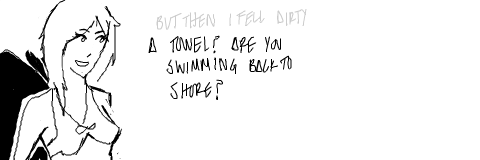 BUT THEN I FELL DIRTY
A TOWEL? ARE YOU
SWIMMING BACK TO
SHORE?